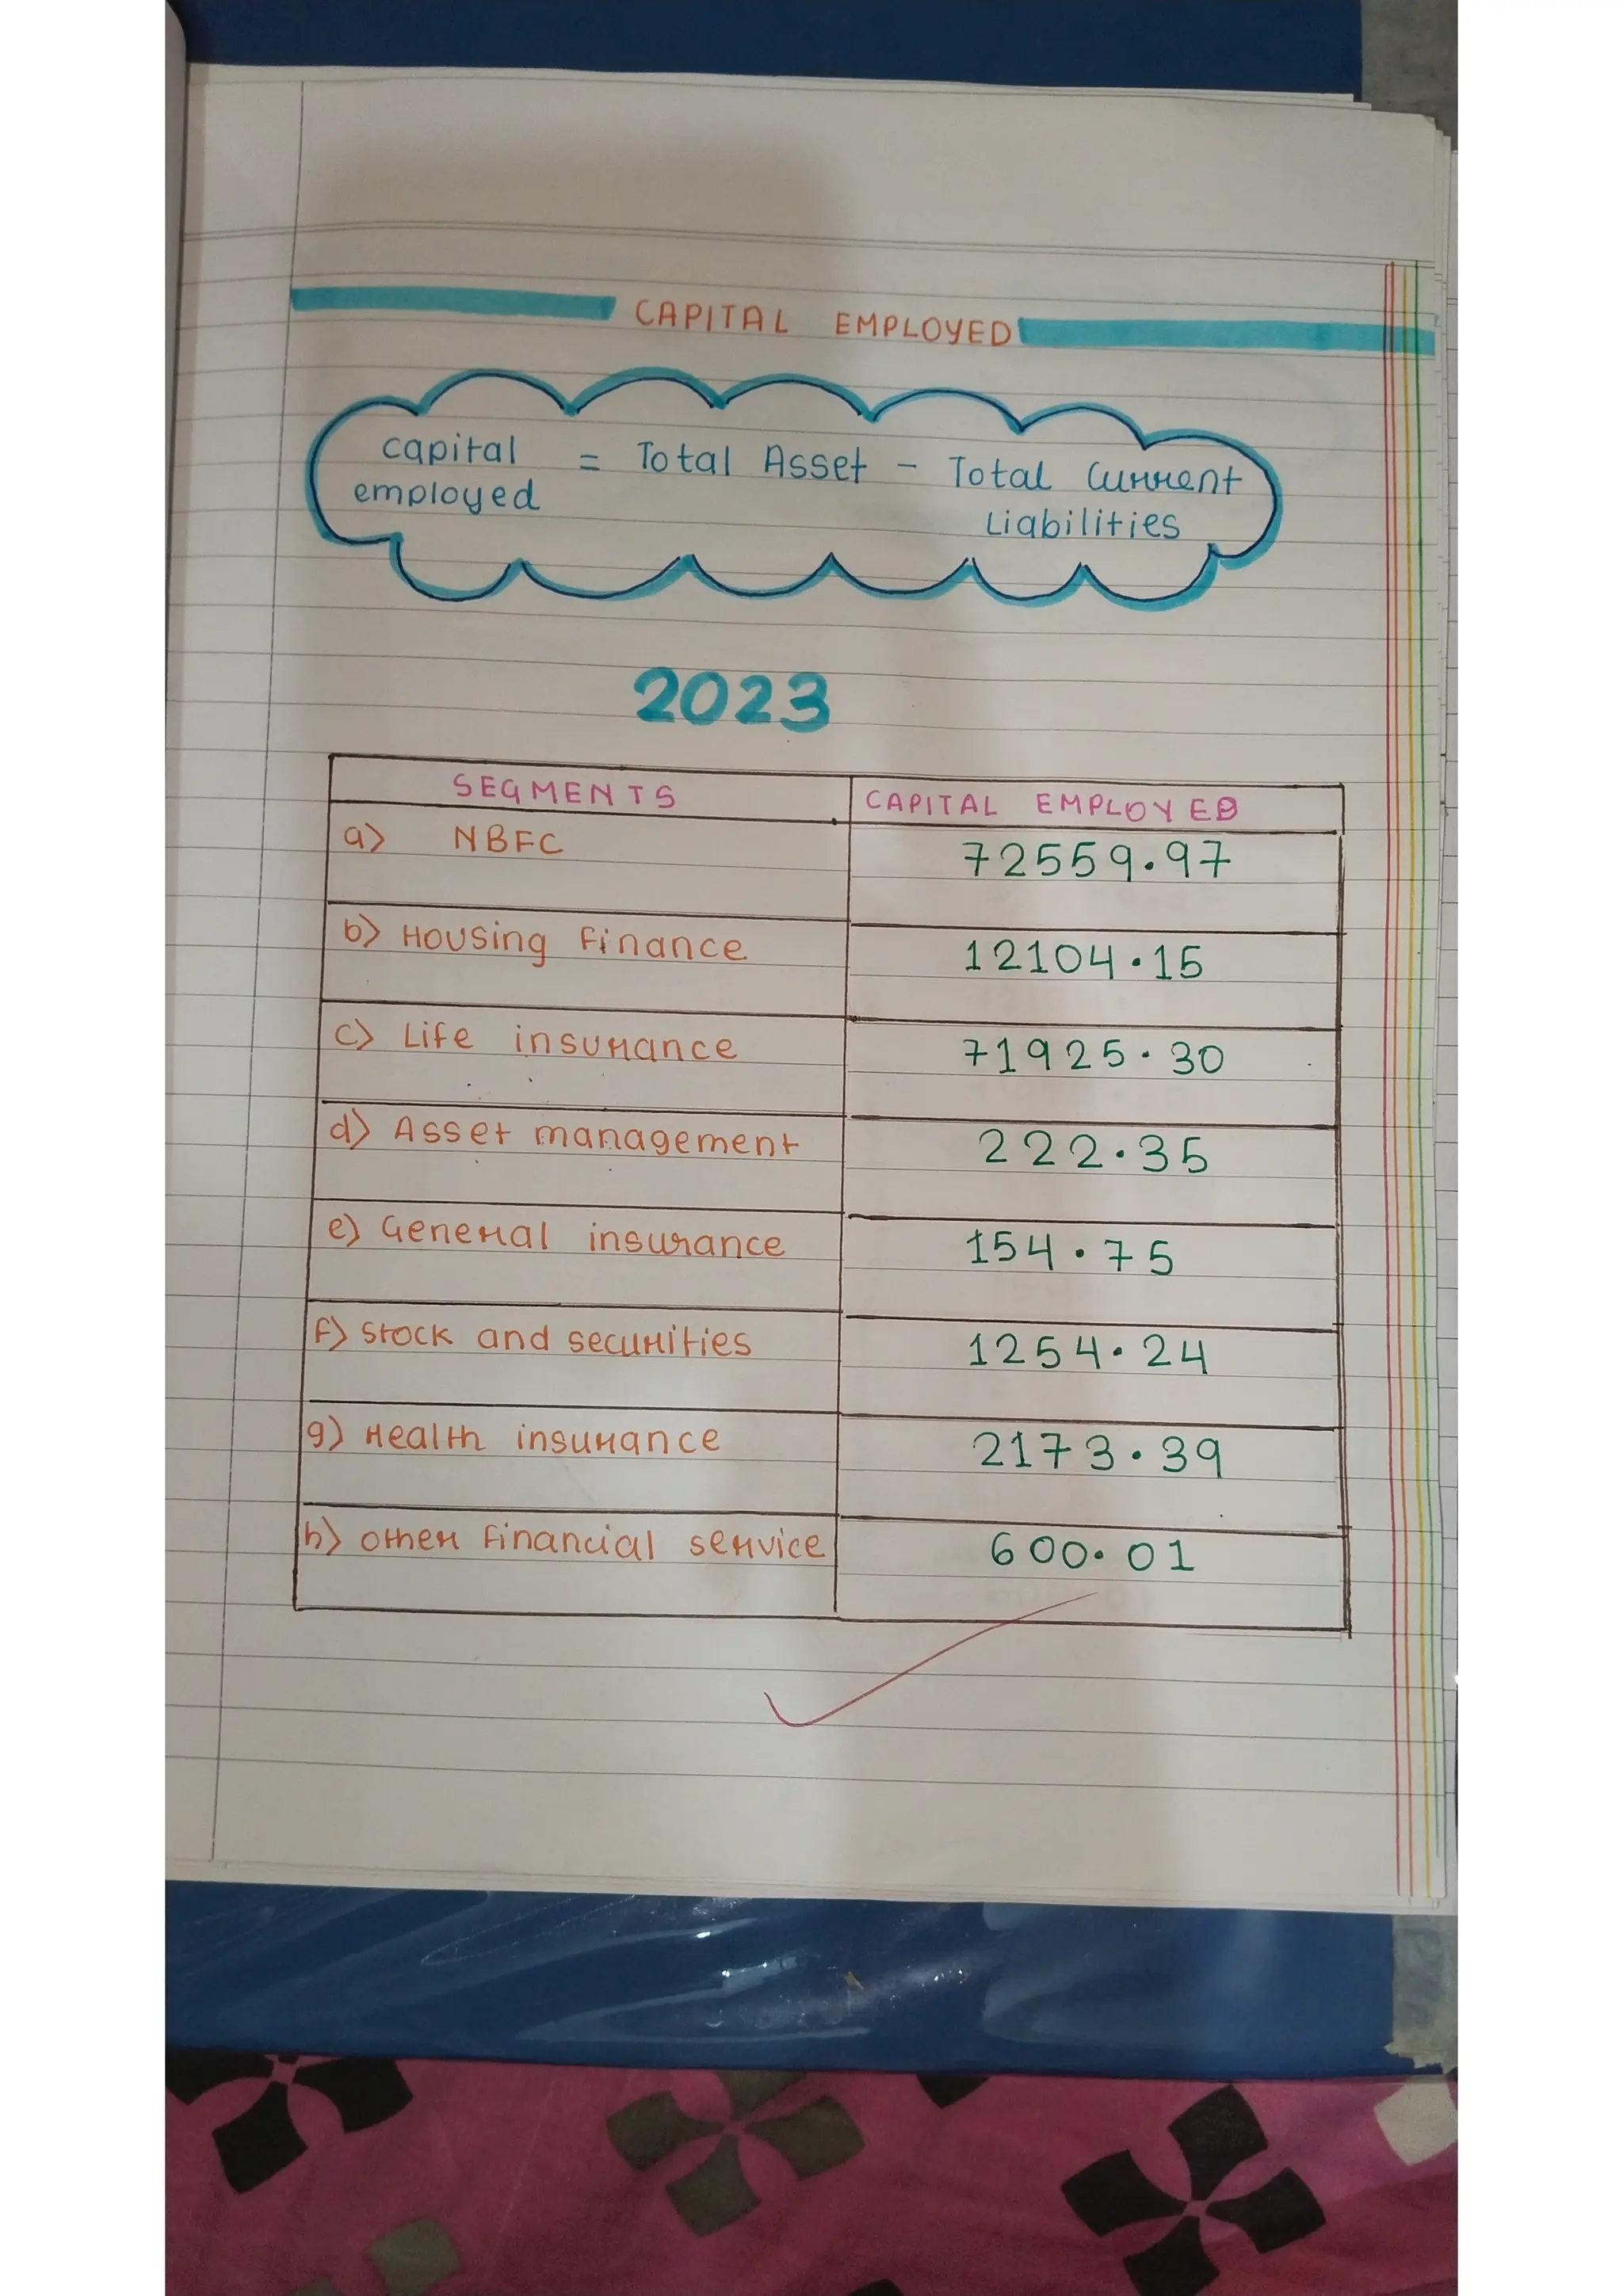 CAPITAL EMPLOYED
capital = Total Asset - Total Current
employed Liabilities
2023
SEGMENTS CAPITAL EMPLOYED
a) NBFC 72559.97
b) Housing Finance 12104.15
c) Life insurance 71925.30
d) Asset management 222.35
e) General insurance 154.75
f) Stock and securities 1254.24
g) Health insurance 2173.39
h) other financial service 600.01